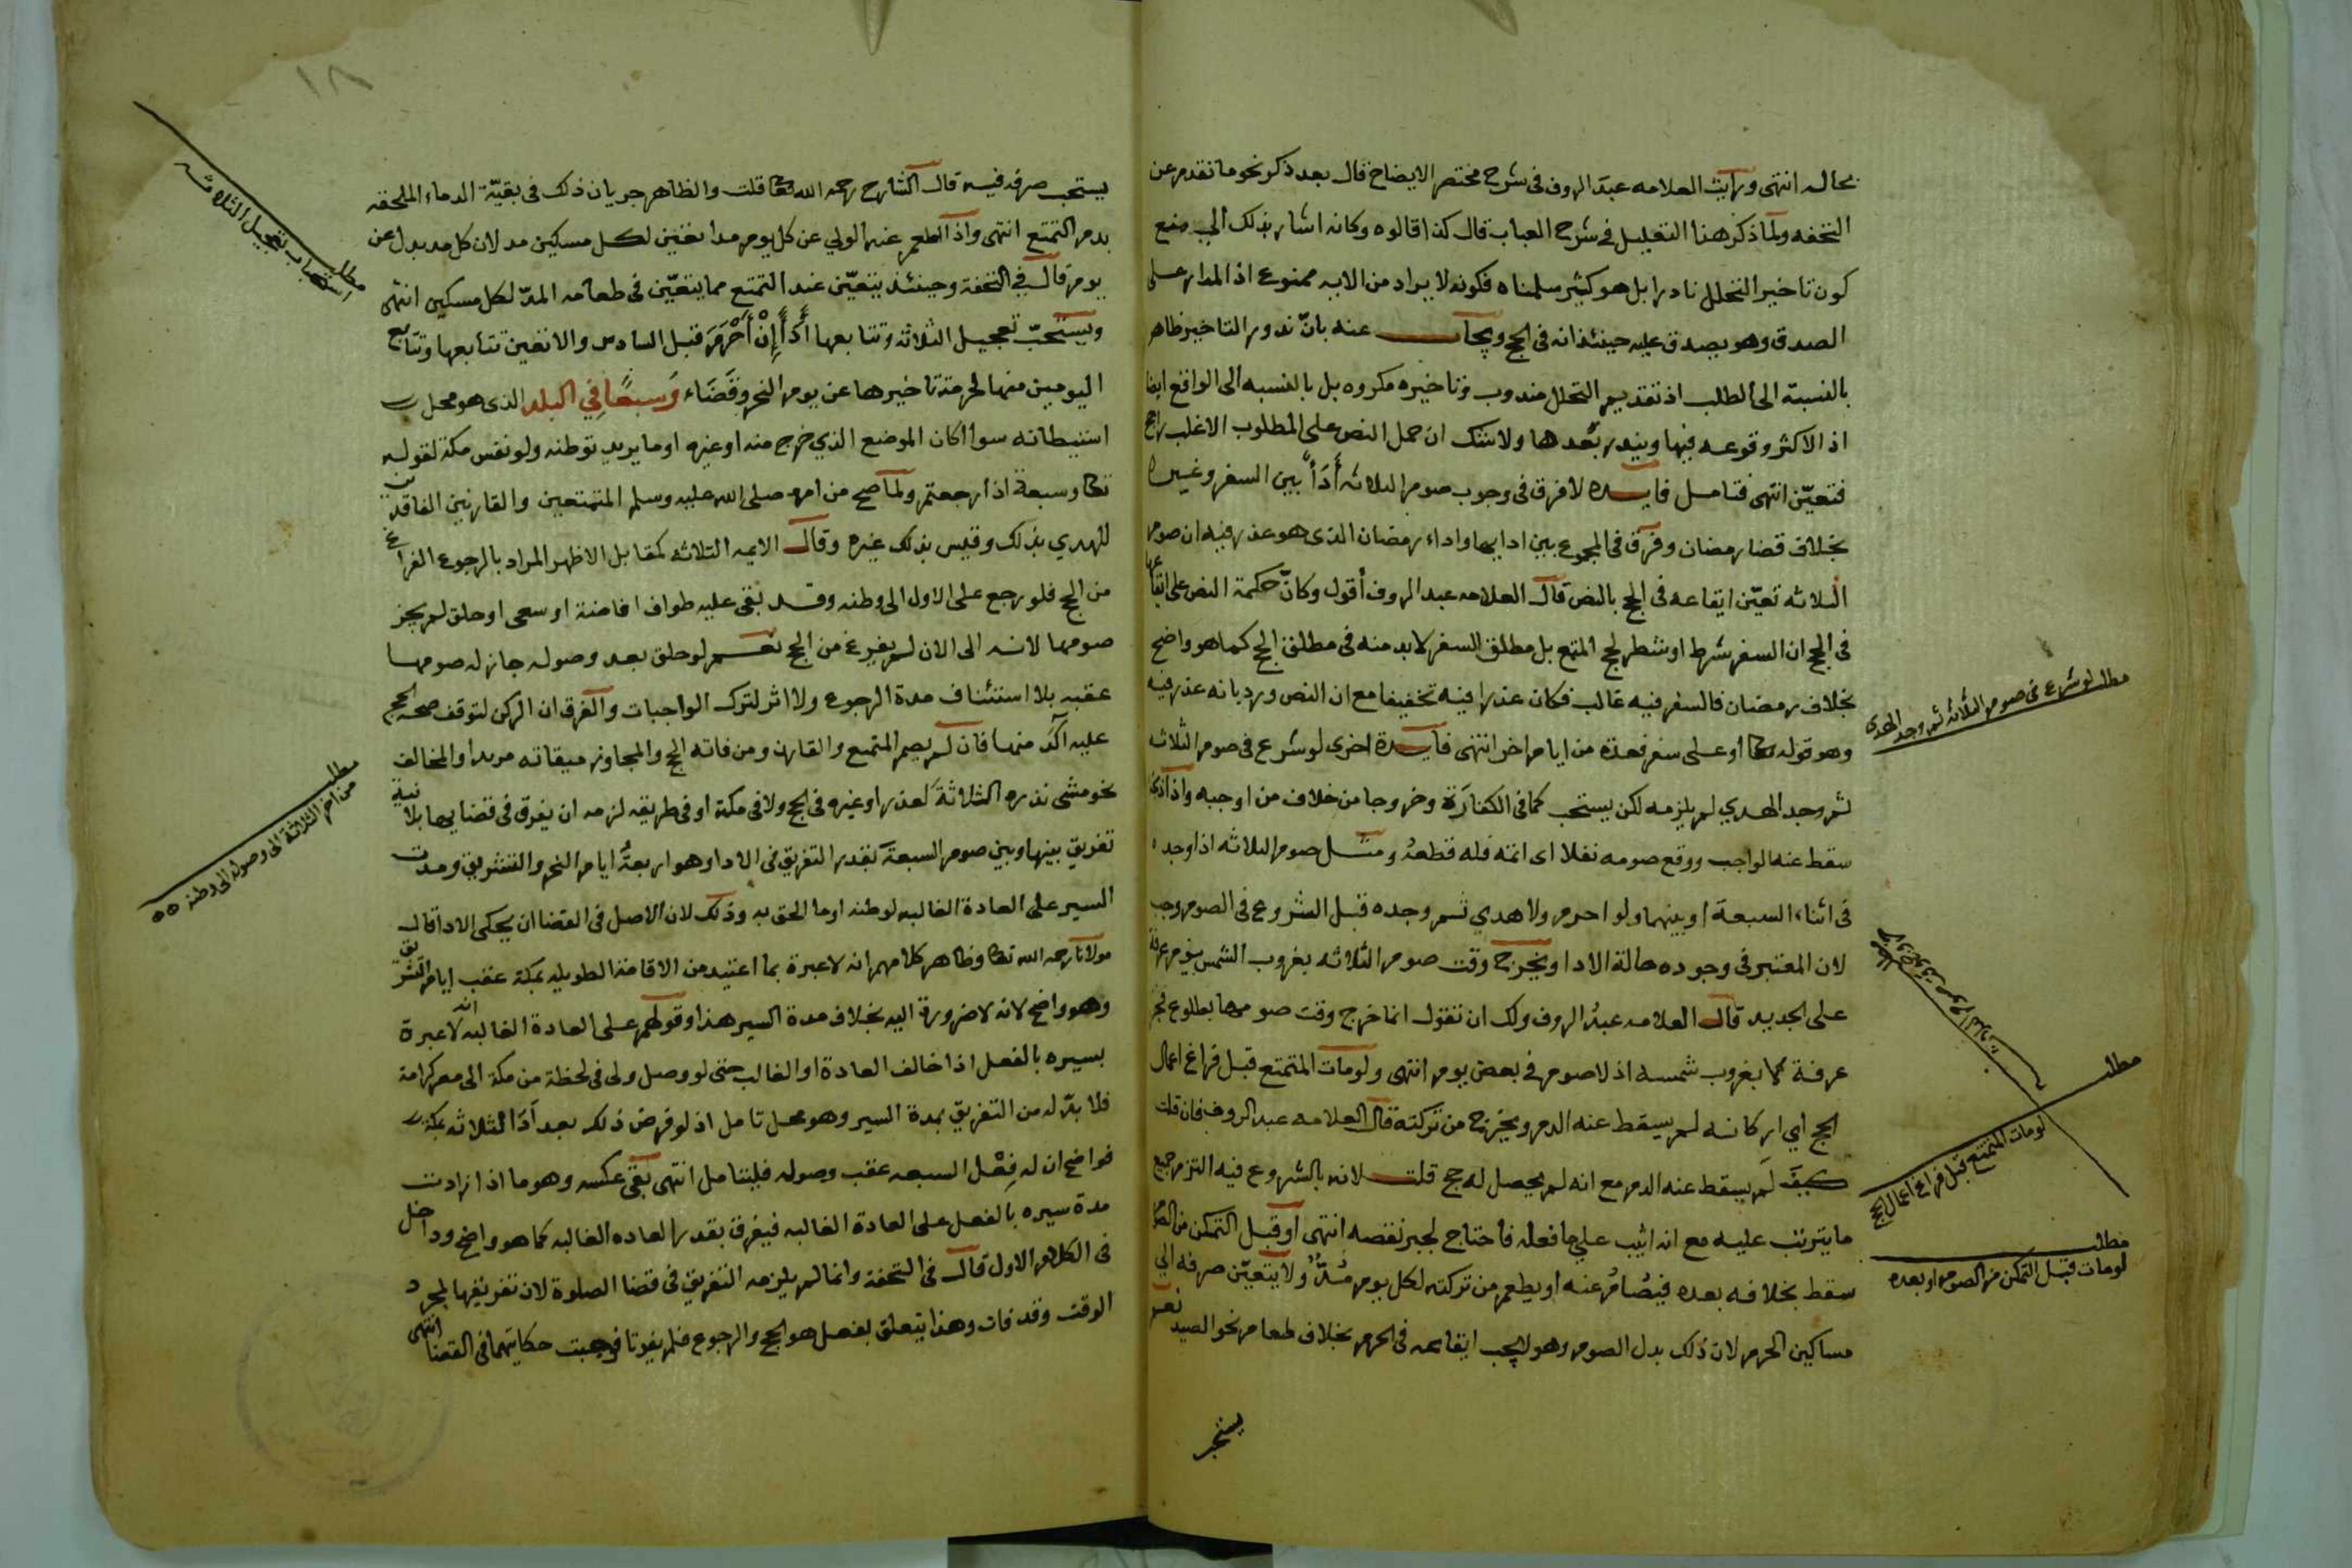 بحاله انتهى ورايت العلامه عبد الروف فى شرح مختصر الايضاح قال بعد ذكر نحو ما تقدم عن
التحفه ولما ذكر هذا التعليل فى شرح العباب قال كذا قالوه وكانه اشار بذلك الى منع
كون تاخير التحلل نادرا بل هو كثير سلمناه فكونه لا يراد من الايه ممنوع اذ المدار على
الصدق وهو يصدق عليه حينئذ انه فى الحج ويجاب عنه بانّ ندور التاخير ظاهر
بالنسبة الى الطلب اذ تقديم التحلل مندوب وتاخيره مكروه بل بالنسبه الى الواقع ايضا
اذ الاكثر وقوعه فيها ويندر بُعدها ولا شك ان حمل النص على المطلوب الاغلب راجح
فتعيّن انتهى فتامل فايده لا فرق فى وجوب صوم الثلاثه أَدَاً بين السفر وغيره
بخلاف قضا رمضان وفرق فى المجموع بين ادايها واداء رمضان الذى هو عذر فيه ان صوم
الثلاثه تعيّن ايقاعه فى الحج بالنص قال العلامه عبد الروف أقول وكانّ حكمة النص على ايقاعها
فى الحج ان السفر شرط او شطر لحج المتمتع بل مطلق السفر لابد منه فى مطلق الحج كما هو واضح
بخلاف رمضان فالسفر فيه غالب فكان عذرا فيه تخفيفا مع ان النص ورد بانه عذر فيه
وهو قوله تعا او على سفر فعدة من ايام اخر انتهى فايدة اخرى لو شرع فى صوم الثلاثه
ثم وجد الهدي لم يلزمه لكن يستحب كما فى الكفارة وخروجا من خلاف من اوجبه واذا ذبح
سقط عنه الواجب ووقع صومه نفلا اى اتمه فله قطعهُ ومثل صوم الثلاثه اذا وجده
فى اثناء السبعة او بينهما ولو احرم ولا هدي ثم وجده قبل الشروع فى الصوم وجب
لان المعتبر فى وجوده حالة الادا ويخرج وقت صوم الثلاثه بغروب الشمس يوم عرفة
على الجديد قال العلامه عبدُ الروف ولك ان تقول انما خرج وقت صومها بطلوع فجر
عرفة لا بغروب شمسه اذ لا صوم فى بعض يوم انتهى ولو مات المتمتع قبل فراغ اعمال
الحج اي اركانه لم يسقط عنه الدم ويخرج من تركته قال العلامه عبد الروف فان قلت
كيف لَم يسقط عنه الدم مع انه لم يحصل له حج قلت لانه بالشروع فيه التزم جميع
ما يترتب عليه مع انه اثيب على ما فعله فاحتاج لجبر نقصه انتهى او قبل التمكن من الصوم
سقط بخلافه بعده فيُصَامُ عنه او يطعم من تركته لكل يوم مُدٌّ ولا يتعيّن صرفه الي
مساكين الحرم لان ذلك بدل الصوم وهو لا يجب ايقاعه فى الحرم بخلاف طعام نحو الصيد نعم
يستحب
مطلب لو شرع فى صوم الثلاثه ثم وجد الهدى
مطلب
لو مات المتمتع قبل فراغ اعمال الحج
مطلب
لو مات قبل التمكن من الصوم او بعده
١٨
يستحب صرفه فيه قال الشارح رحمه الله تعا قلت والظاهر جريان ذلك فى بقيّة الدماء الملحقه
بدم التمتع انتهى واذا اطعم عنه الولي عن كل يوم مدا تعين لكل مسكين مد لان كل مد بدل عن
يوم قال في التحفة وحينئذ يتعيّن عند التمتع مما يتعيّن فى طعامه المدّ لكل مسكين انتهى
ويستحبّ تعجيل الثلاثه وتتابعها أَدَاً إِنْ أَحْرَمَ قبل السادس والا تعين تتابعها وتتابع
اليومين منها لحرمة تاخيرها عن يوم النحر وقَضَاء وَسبعًا فِي البلد الذى هو محل
استيطانه سوا اكان الموضع الذي خرج منه او غيره او ما يريد توطنه ولو نفس مكة لقوله
تعا وسبعة اذا رجعتم ولما صح من امره صلى الله عليه وسلم المتمتعين والقارنين الفاقدين
للهدي بذلك وقيس بذلك غيره وقال الايمه الثلاثه كمقابل الاظهر المراد بالرجوع الفراغ
من الحج فلو رجع على الاول الى وطنه وقد بقى عليه طواف افاضة او سعى او حلق لم يجز
صومها لانه الى الان لم يفرغ من الحج نعم لو حلق بعد وصوله جاز له صومها
عقبه بلا استئناف مدة الرجوع ولا اثر لترك الواجبات والفرق ان الركن لتوقف صحة الحج
عليه آكَد منها فان لم يصم المتمتع والقارن ومن فاته الحج والمجاوز ميقاته مريدا والمخالف
نحو مشى نذره الثلاثةَ لعذر او غيره فى الحج ولا فى مكة او فى طريقه لزمه ان يفرق فى قضايها بلا نية
تفريق بينها وبين صوم السبعة بقدر التفريق فى الادا وهو اربعةُ ايام النحر والتشريق ومدت
السير على العادة الغالبه لوطنه او ما الحق به وذلك لان الاصل فى القضا ان يحكى الادا قال
مولانا رحمه الله تعا وظاهر كلامهم انه لا عبرة بما اعتيد من الاقامة الطويله بمكة عقب ايام التشريق
وهو واضح لانه لا ضرورة اليه بخلاف مدة السير هذا وقولهم على العادة الغالبه انه لا عبرة
بسيره بالفعل اذا خالف العادة او الغالب حتى لو وصل ولى فى لحظة من مكة الى مصر كرامة
فلا بدّ له من التفريق بمدة السير وهو محل تامل اذ لو فرض ذلك بعد آدَا الثلاثه بمكة
فواضح ان له فِعْل السبعه عقب وصوله فليتامل انتهى بقى عكسه وهو ما اذا زادت
مدة سيره بالفعل على العادة الغالبه فيفرق بقدر العاده الغالبه كما هو واضح وداخل
فى الكلام الاول قال فى التحفة وانما لم يلزمه التفريق فى قضا الصلوة لان تفريقها لمجرد
الوقت وقد فات وهذا يتعلق بفعل هو الحج والرجوع فلم يفوتا فوجبت حكايتهما فى القضا انتهى
مطلب
استحباب تعجيل الثلاثه
مطلب
من اخر الثلاثة الى وصوله الى وطنه